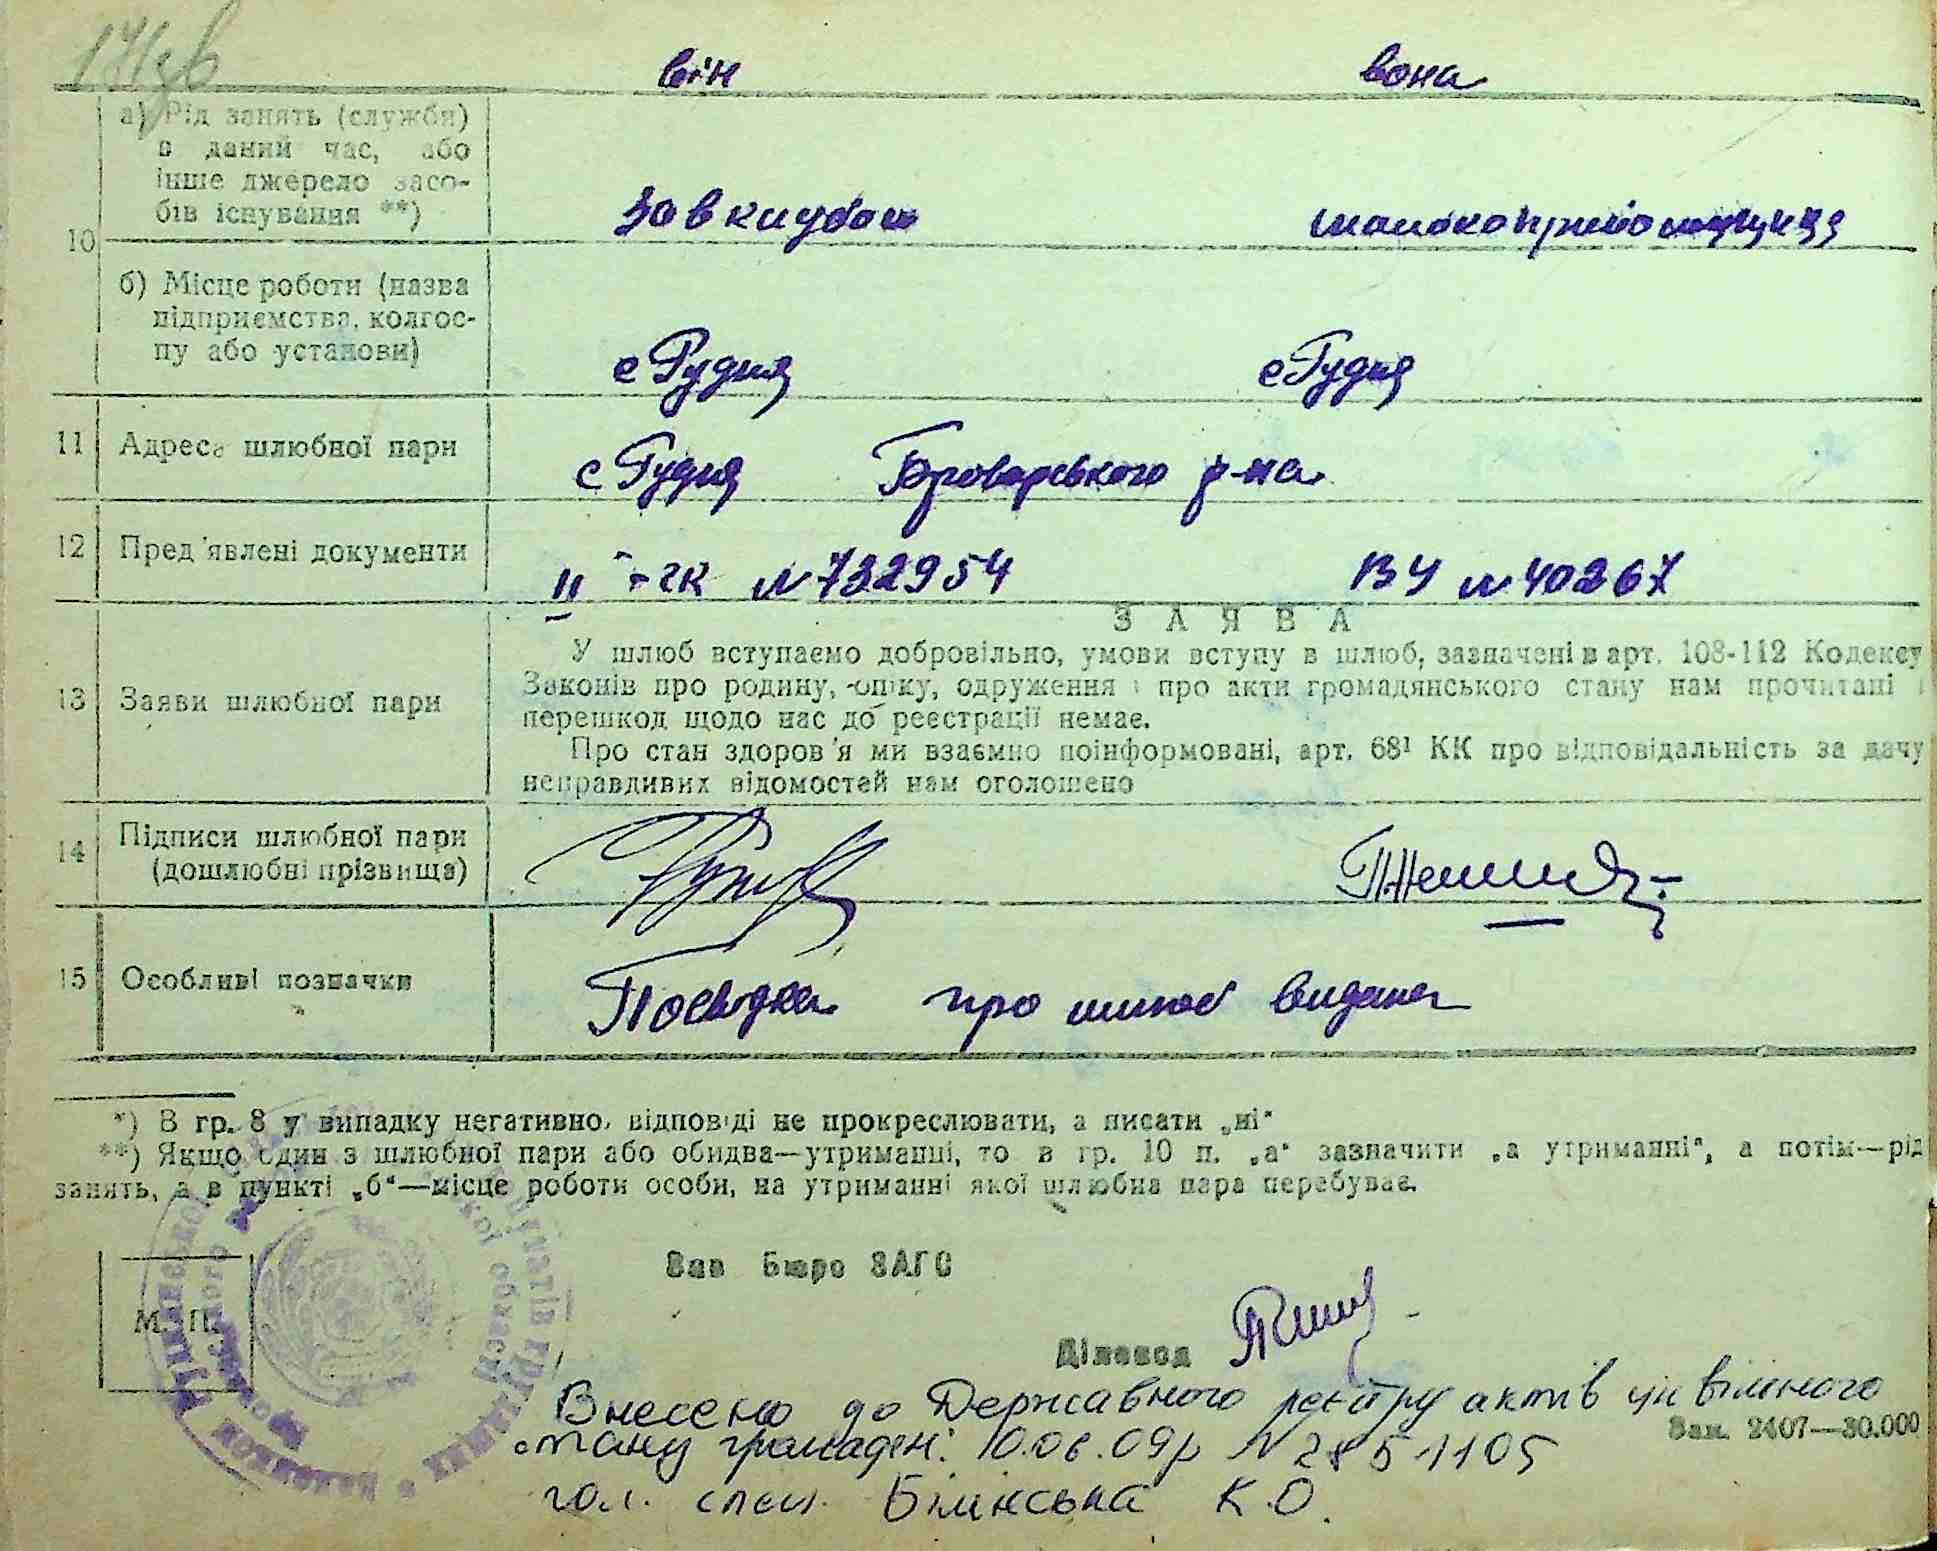 171зв
він вона
10
а) Рід занять (служби)
в даний час, або
інше джерело засо-
бів існування **)
Зав клубом молокоприйомщиця
б) Місце роботи (назва
підприємства, колгос-
пу або установи)
с Рудня с Рудня
11 Адреса шлюбної пари с Рудня Броварського р-на
12 Пред'явлені документи II - СК N 732954 ВУ N 40267
13 Заяви шлюбної пари
ЗАЯВА
У шлюб вступаємо добровільно, умови вступу в шлюб, зазначені в арт. 108-112 Кодексу
Законів про родину, опіку, одруження і про акти громадянського стану нам прочитані і
перешкод щодо нас до реєстрації немає.
Про стан здоров'я ми взаємно поінформовані, арт. 68¹ КК про відповідальність за дачу
неправдивих відомостей нам оголошено
14 Підписи шлюбної пари
(дошлюбні прізвища)
15 Особливі позначки Посвідка про шлюб видана
*) В гр. 8 у випадку негативно, відповіді не прокреслювати, а писати „ні“
**) Якщо один з шлюбної пари або обидва—утриманці, то в гр. 10 п. „а“ зазначити „а утриманні“, а потім—рід
занять, а в пункті „б“—місце роботи особи, на утриманні якої шлюбна пара перебуває.
Зав Бюро ЗАГС
М. П.
Діловод
Внесено до Державного реєстру актів цивільного
Зам. 2407—30.000
стану громадян: 10.06.09р N 2851105
гол. спец. Білінська К.О.